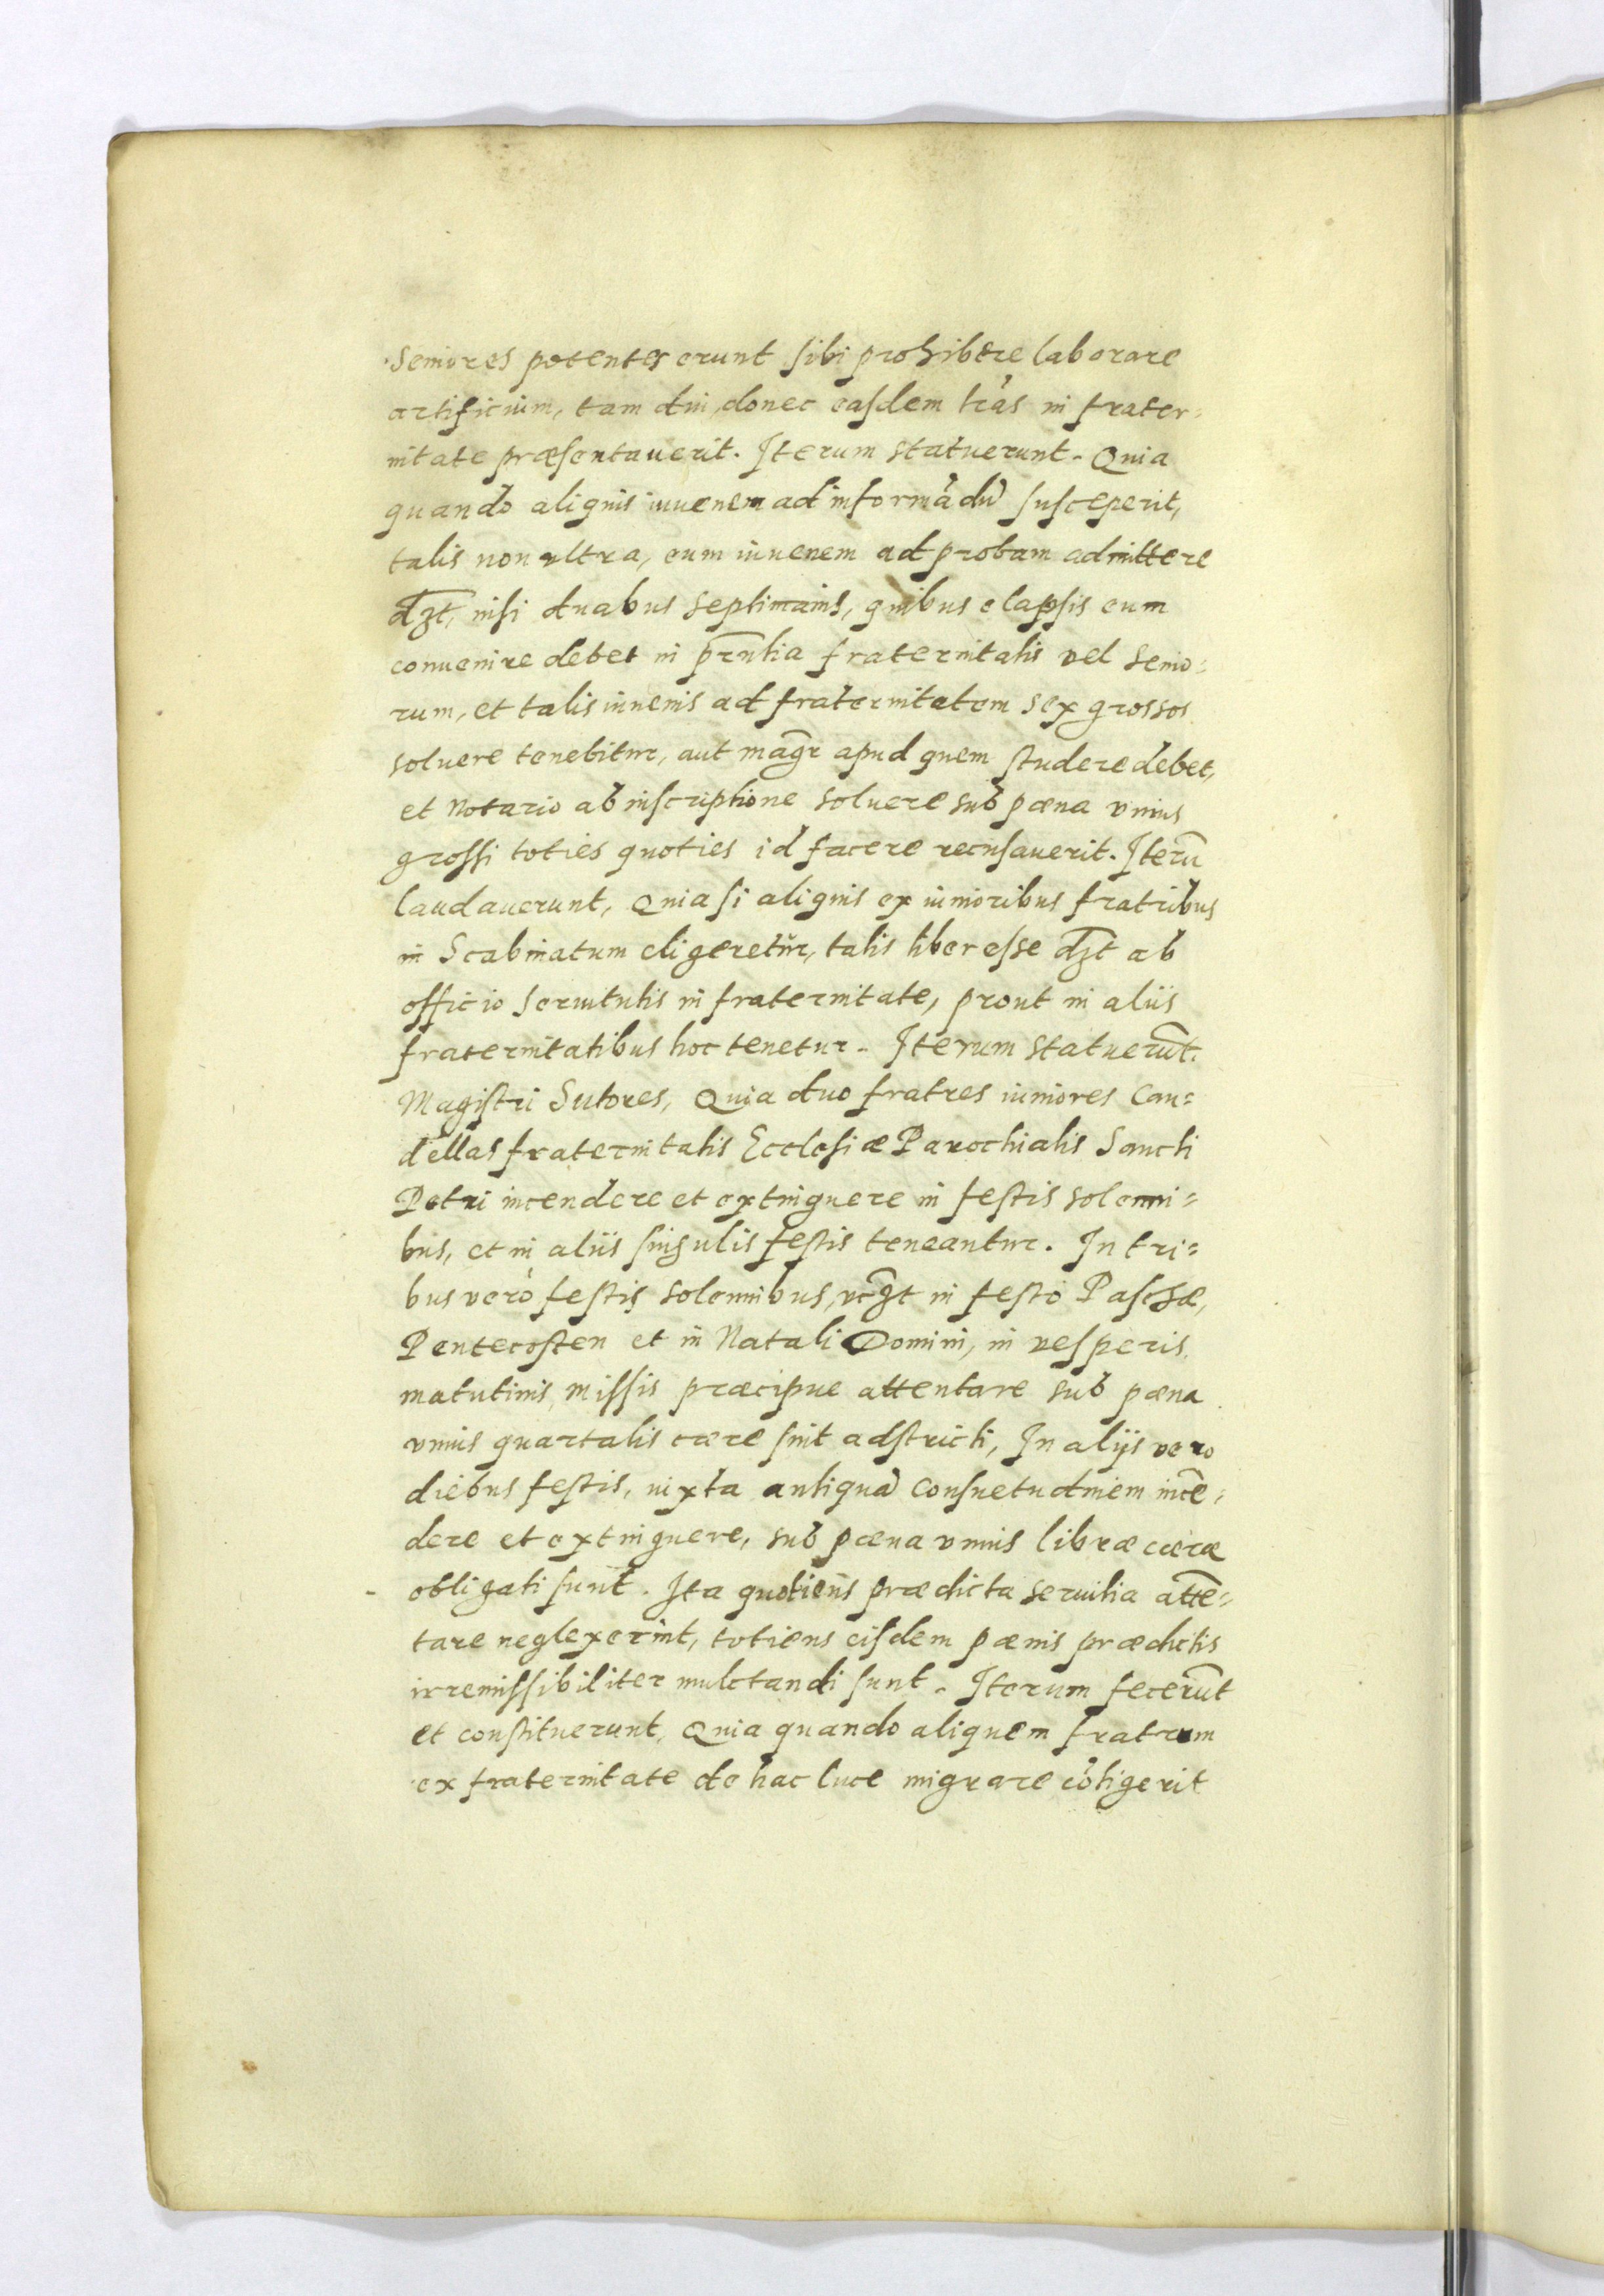 Seniores potentes erunt sibi prohibere laborare
artificium, tam diu, donec easdem lrãs in frater=
nitate præsentauerit. Iterum statuerunt. Quia
quando aliquis iuuenem ad informãdũ susceperit,
talis non vltra, eum iuuenem ad probam admittere
dʒt, nisi duabus septimanis, quibus elapsis eum
conuenire debet in prñtia fraternitatis vel Senio=
rum, et talis iuuenis ad fraternitatem sex grossos
soluere tenebitur, aut magr̃ apud quem studere debet,
et Notario ab inscriptione soluere sub pœna vnius
grossi toties quoties id facere recusauerit. Iterũ
laudauerunt, Quia si aliquis ex iunioribus fratribus
in Scabinatum eligeretur, talis liber esse dʒt ab
officio seruitutis in fraternitate, prout in aliis
fraternitatibus hoc tenetur. Iterum statuerũt.
Magistri Sutores, Quia duo fratres iuniores Can=
dellas fraternitatis Ecclesiæ Parochialis Sancti
Petri incendere et extinguere in festis solenni=
bus, et in aliis singulis festis teneantur. In tri=
bus verò festis solennibus, vᷓʒt in festo Paschæ,
Pentecosten et in Natali Domini, in vesperis
matutinis, missis præcipue attentare sub pœna
vnius quartalis cæræ sint adstricti, In alijs vero
diebus festis, iuxta antiquã consuetudinem incẽ=
dere et extinguere, sub pœna vnius libræ cæræ
obligati sunt. Ita quotiens prædicta seruitia attẽ=
tare neglexerint, totiens eisdem pœnis prædictis
irremissibiliter mulctandi sunt. Iterum fecerũt
et constituerunt, Quia quando aliquem fratrum
ex fraternitate de hac luce migrare cõtigerit